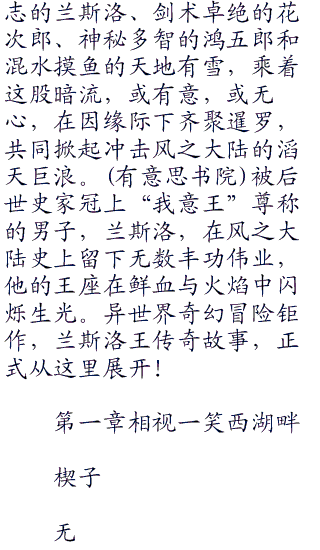 志的兰斯洛、剑术卓绝的花
次郎、神秘多智的鸿五郎和
混水摸鱼的天地有雪，乘着
这股暗流，或有意，或无
心，在因缘际下齐聚暹罗，
共同掀起冲击风之大陆的滔
天巨浪。(有意思书院)被后
世史家冠上“我意王”尊称
的男子，兰斯洛，在风之大
陆史上留下无数丰功伟业，
他的王座在鲜血与火焰中闪
烁生光。异世界奇幻冒险钜
作，兰斯洛王传奇故事，正
式从这里展开！
第一章相视一笑西湖畔
楔子
无